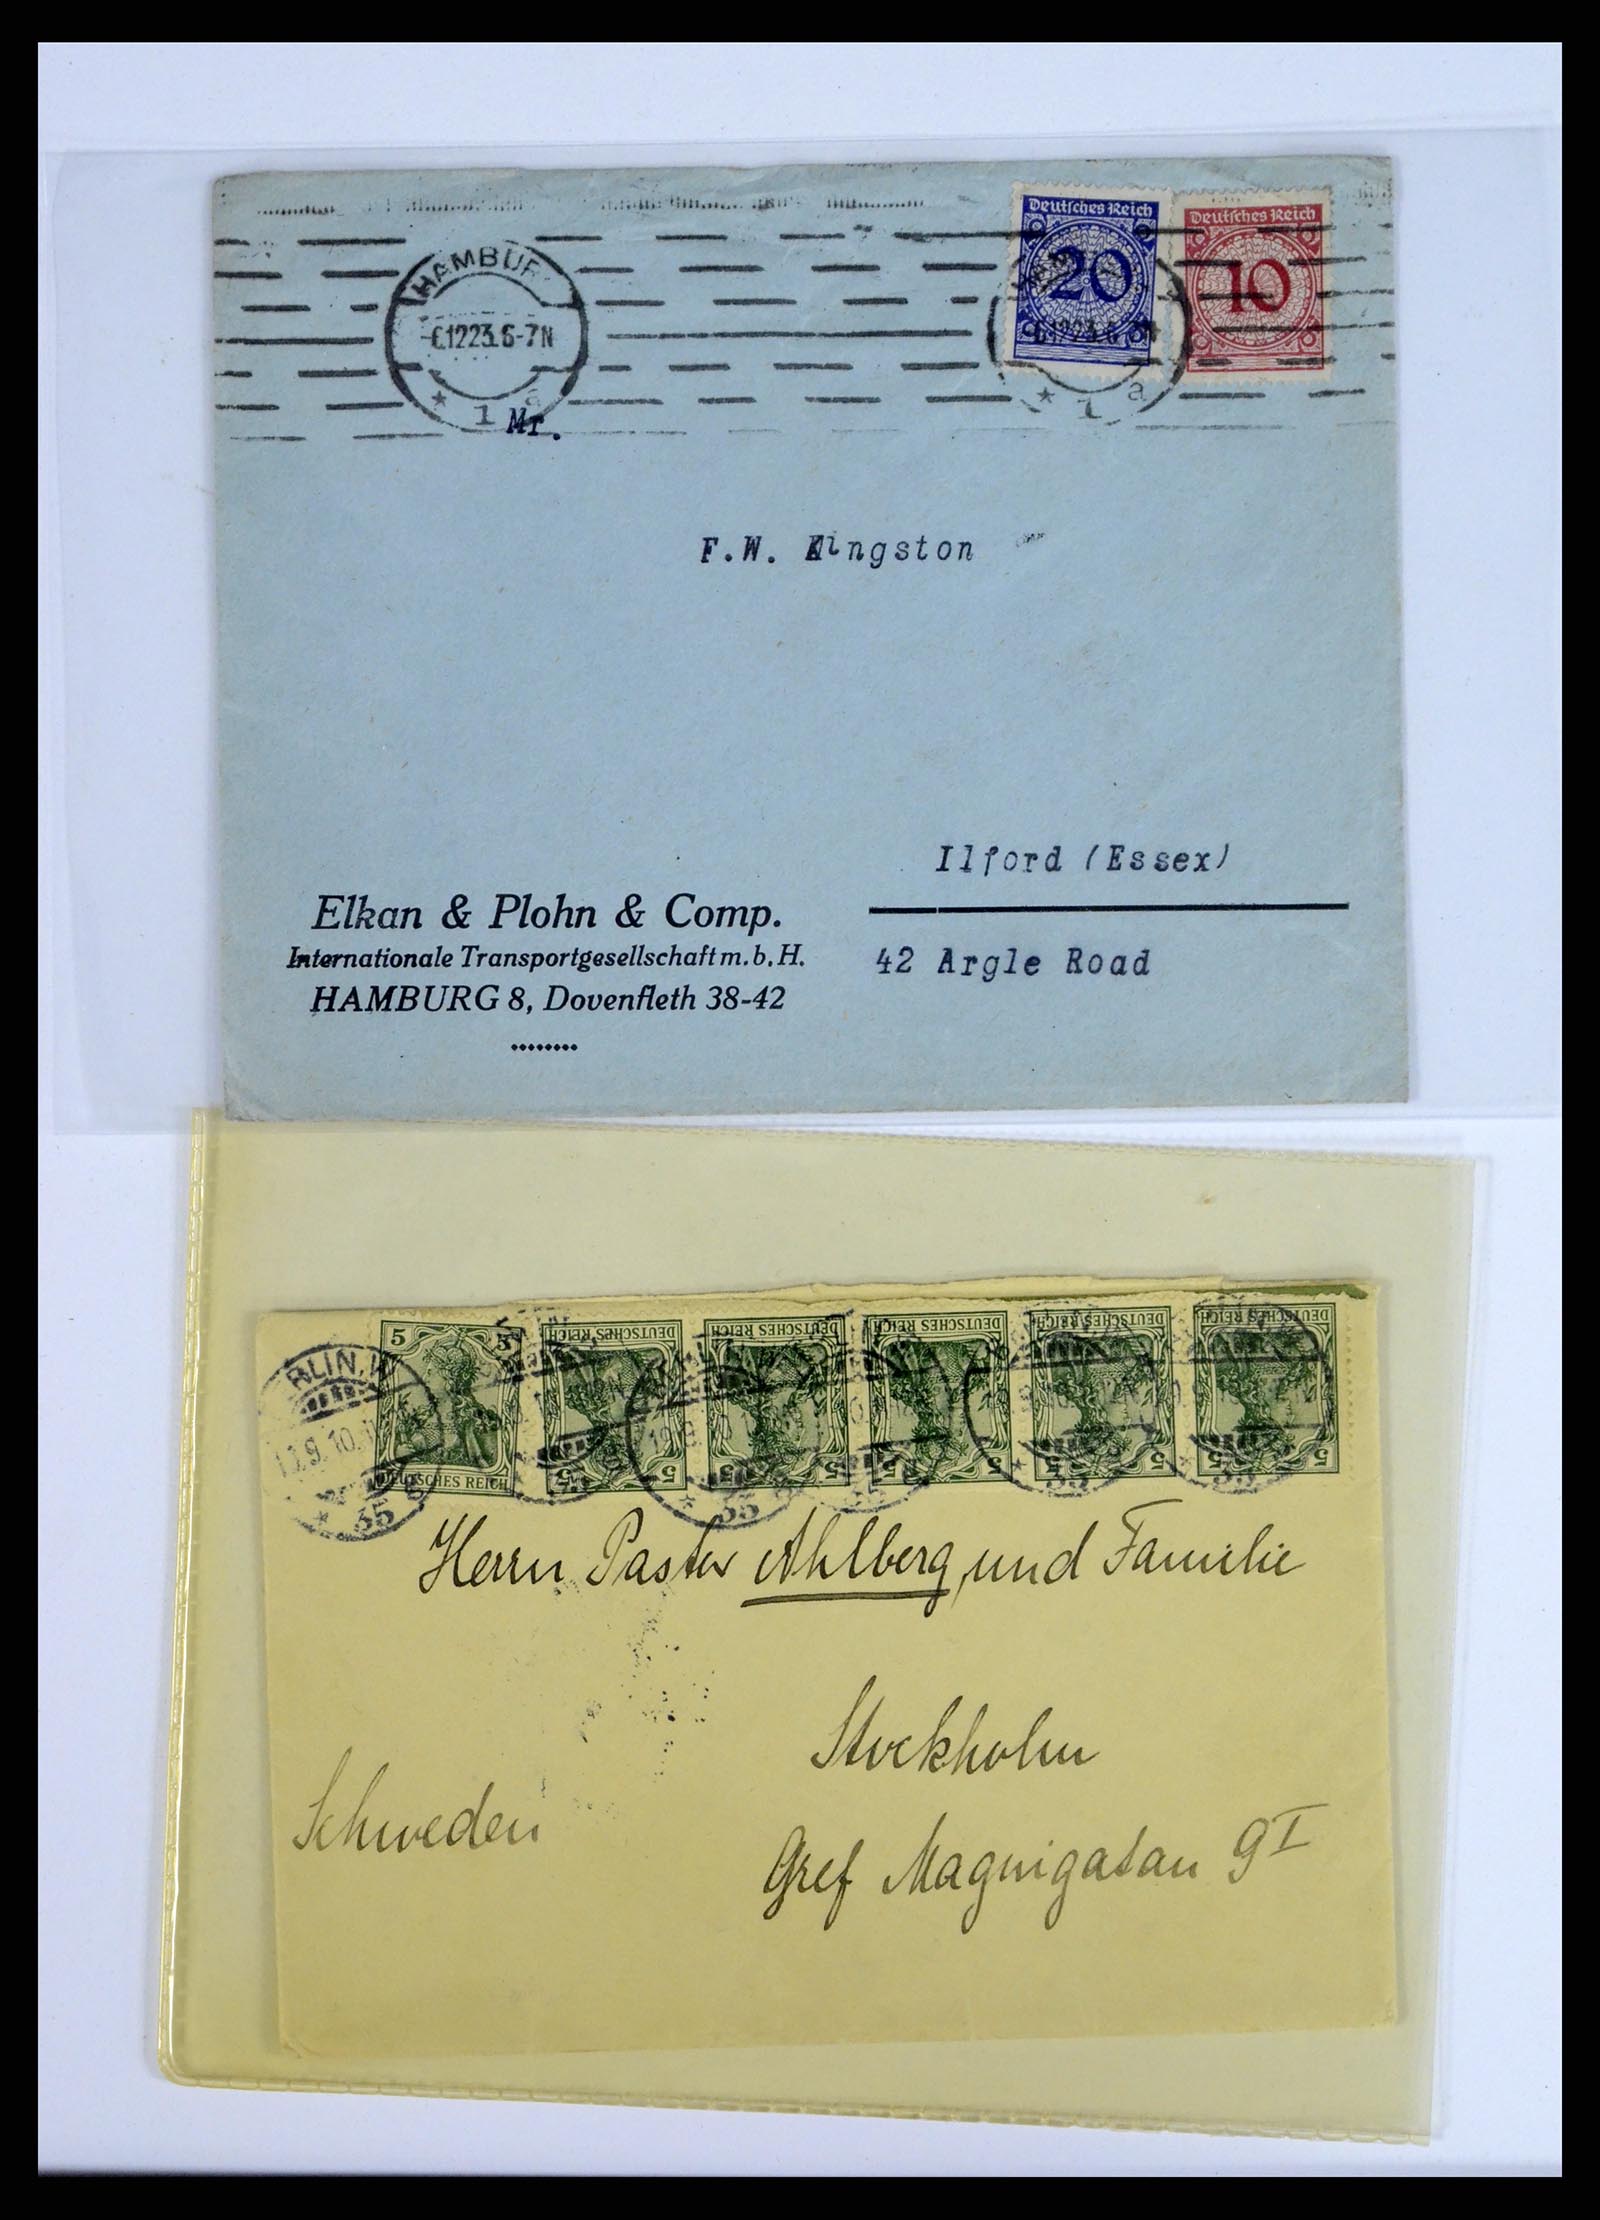 HAMBUR
6.12 23.6-7N
* 1 a
Deutsches Reich
20
Deutsches Reich
10
* 1 a
Mr.
F.W. Kingston
Ilford (Essex)
42 Argle Road
Elkan & Plohn & Comp.
Internationale Transportgesellschaft m.b.H.
HAMBURG 8, Dovenfleth 38-42
5 5
DEUTSCHES REICH
DEUTSCHES REICH
5 5
DEUTSCHES REICH
5 5
DEUTSCHES REICH
5 5
DEUTSCHES REICH
5 5
DEUTSCHES REICH
5 5
RLIN.W
9.10
* 35
* 35
35
* 35
* 35
Herrn Pastor Ahlberg und Familie
Stockholm
Schweden
Gref Magnigatan 9 I